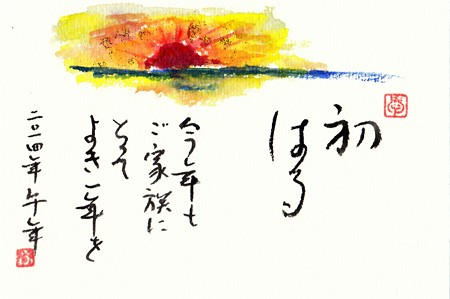 初
はる
今年も
ご家族に
とって
よき一年を
二〇一四年 午年